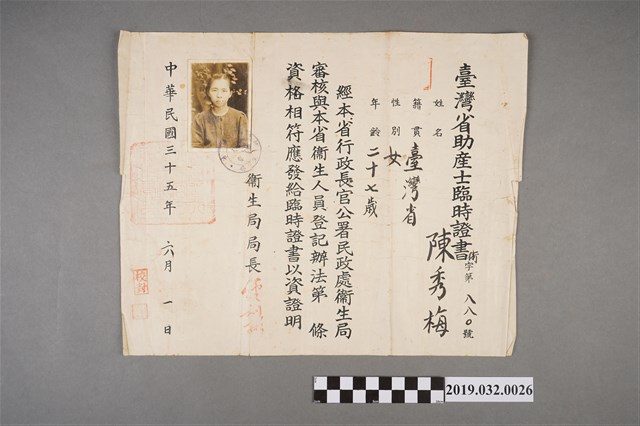 臺灣省助產士臨時證書
衛字第八八〇號
姓名 陳秀梅
籍貫 臺灣省
性別 女
年齡 二十七歲
經本省行政長官公署民政處衞生局
審核與本省衞生人員登記辦法第 條
資格相符應發給臨時證書以資證明
衞生局局長
中華民國三十五年 六月 一 日
2019.032.0026